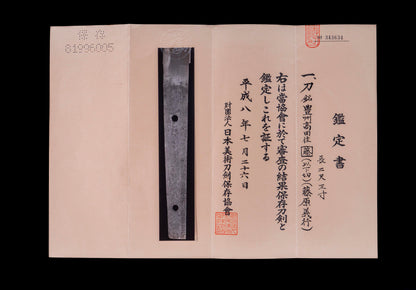 鑑定書
一、刀 銘 豊州高田住藤(以下切)(藤原義行)
長 二尺三寸
右は當協會に於て審査の結果保存刀剣と
鑑定しこれを証する
平成八年七月二十六日
財團法人日本美術刀剣保存協會
保存
81996005
343634